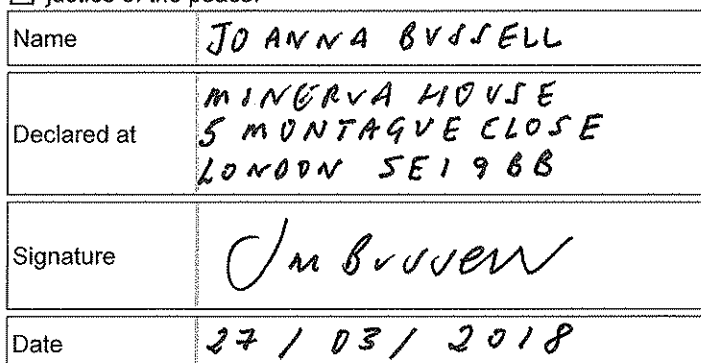 justice of the peace.
Name JOANNA BUSSELL
Declared at MINERVA HOUSE
5 MONTAGUE CLOSE
LONDON SE1 9BB
Signature JM Bussell
Date 27 / 03 / 2018